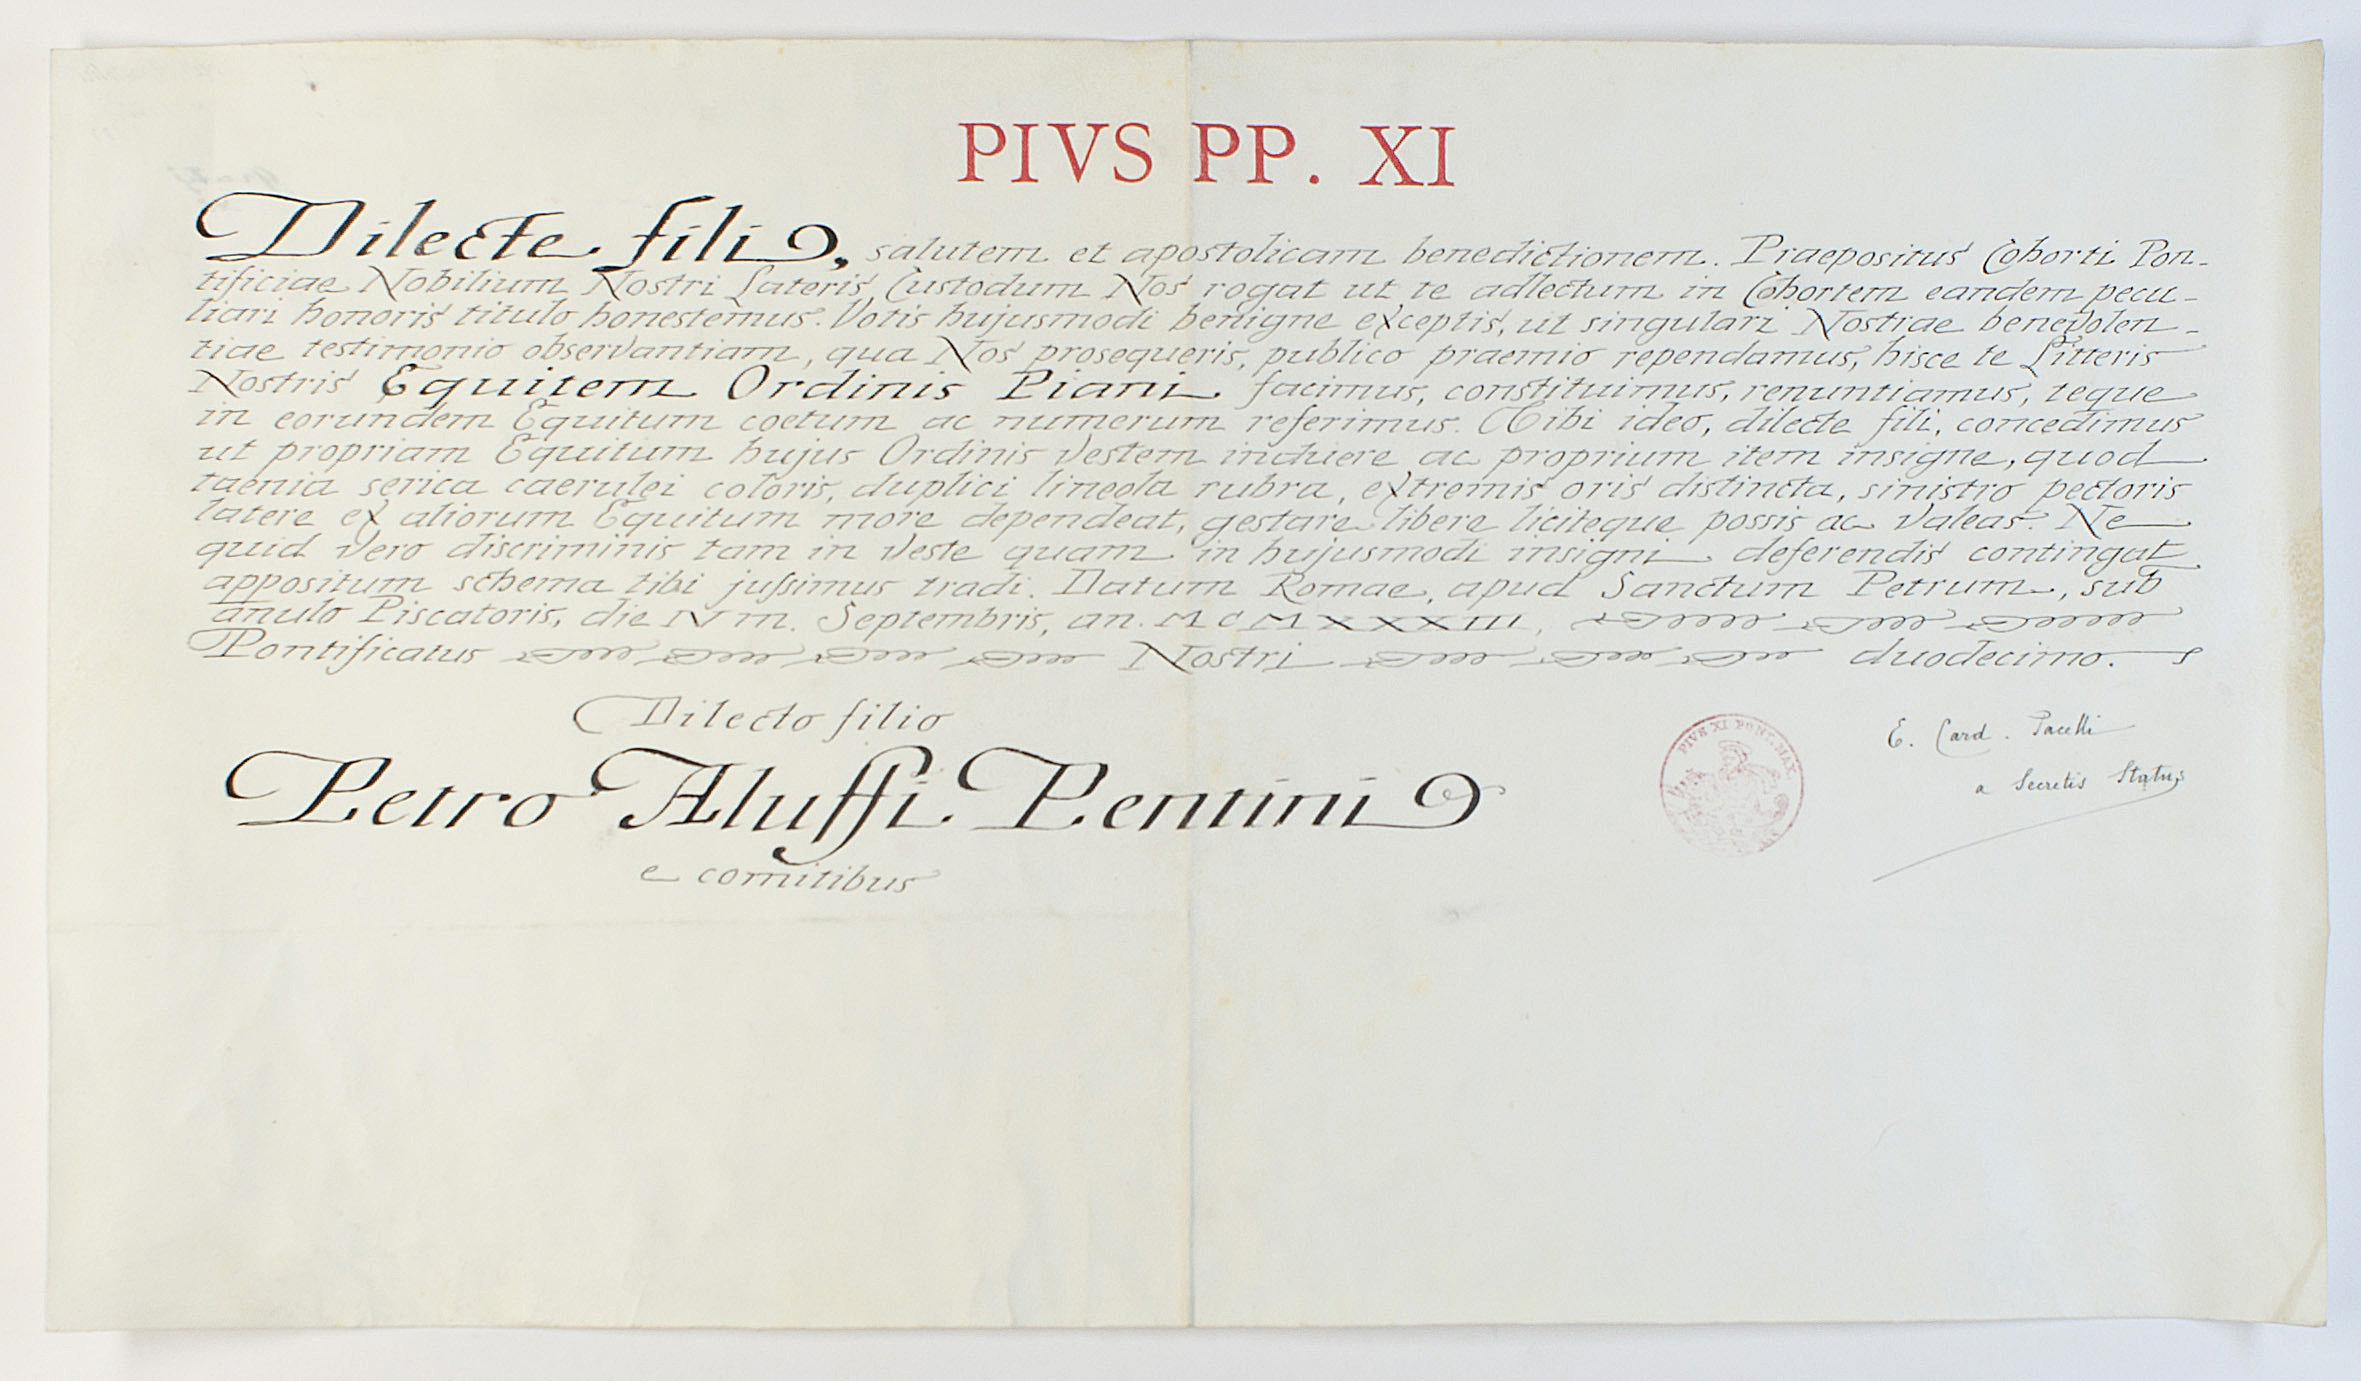 PIVS PP. XI
Dilecte fili, salutem et apostolicam benedictionem. Praepositus Cohorti Pon-
tificiae Nobilium Nostri Lateris Custodum Nos rogat ut te adlectum in Cohortem eandem pecu-
liari honoris titulo honestemus. Votis hujusmodi benigne exceptis, ut singulari Nostrae benevolen-
tiae testimonio observantiam, qua Nos prosequeris, publico praemio rependamus, hisce te Litteris
Nostris Equitem Ordinis Piani facimus, constituimus, renuntiamus, teque
in eorundem Equitum coetum ac numerum referimus. Tibi ideo, dilecte fili, concedimus
ut propriam Equitum hujus Ordinis vestem induere ac proprium item insigne, quod
taenia serica caerulei coloris, duplici lineola rubra, extremis oris distincta, sinistro pectoris
latere ex aliorum Equitum more dependeat, gestare libere liciteque possis ac valeas. Ne
quid vero discriminis tam in veste quam in hujusmodi insigni deferendis contingat
appositum schema tibi jussimus tradi. Datum Romae, apud Sanctum Petrum, sub
anulo Piscatoris, die IV m. Septembris, an. MCMXXXIII,
Pontificatus Nostri duodecimo.
Dilecto filio
Petro Aluffi Pentini
e comitibus
PIVS XI PONT. MAX.
E. Card. Pacelli
a Secretis Status